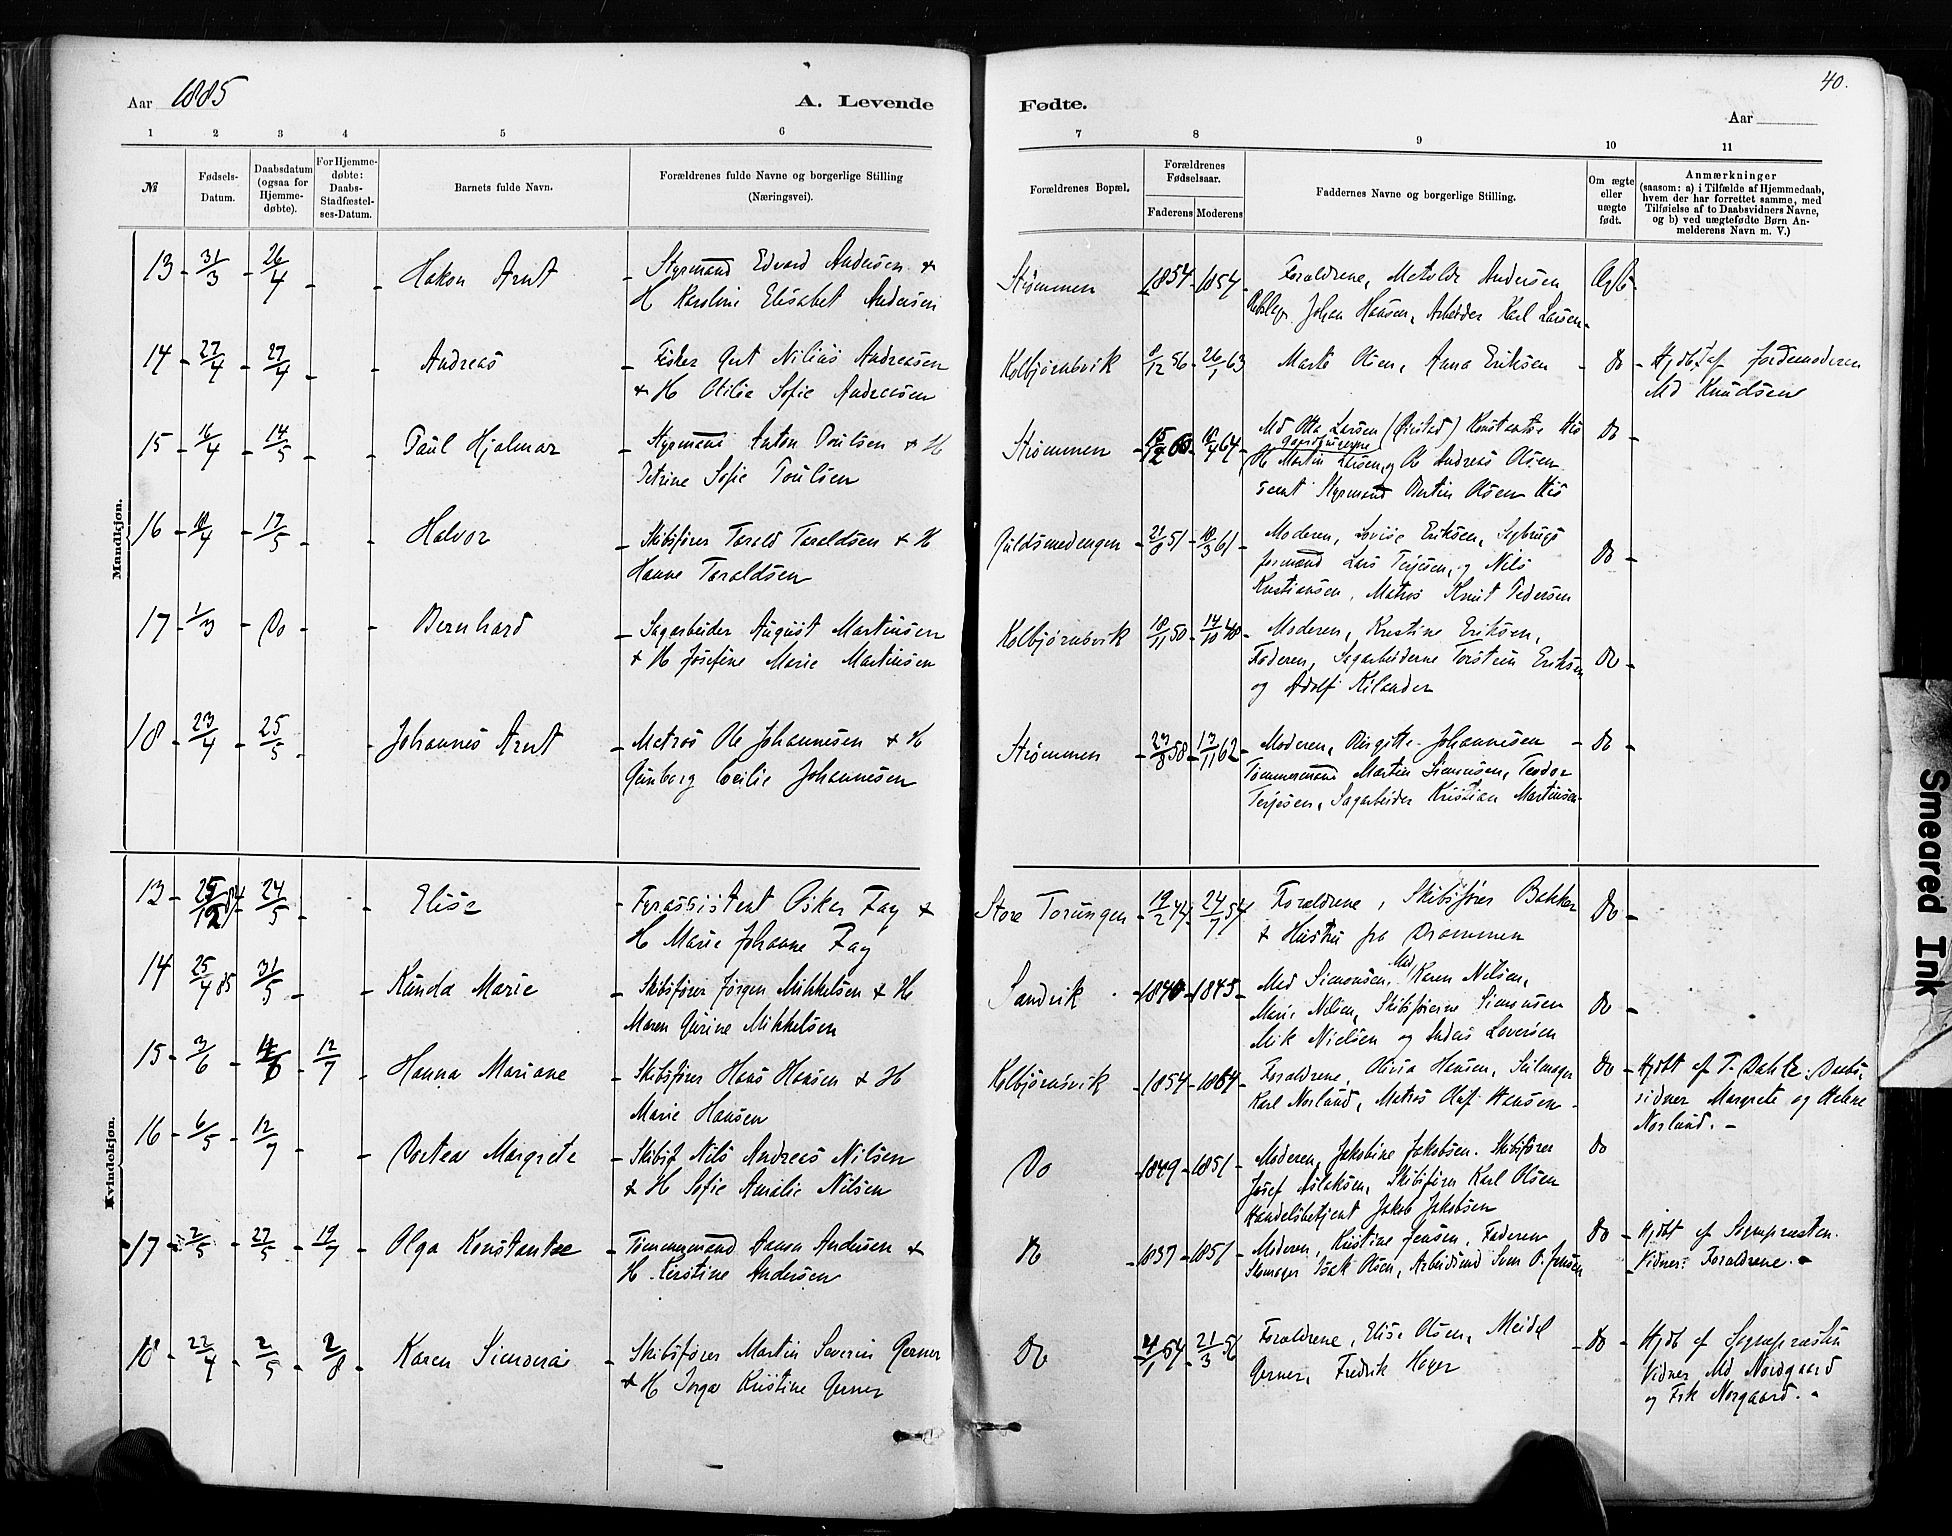 40.
Aar 1885
A. Levende Fødte.
Aar
1 2 3 4 5 6 7 8 9 10 11
№
Fødsels-Datum.
Daabsdatum (ogsaa for Hjemme-døbte).
For Hjemme-døbte: Daabs-Stadfæstel-ses-Datum.
Barnets fulde Navn.
Forældrenes fulde Navne og borgerlige Stilling (Næringsvei).
Forældrenes Bopæl.
Forældrenes Fødselsaar.
Faderens Moderens
Faddernes Navne og borgerlige Stilling.
Om ægte eller uægte født.
Anmærkninger
(saasom: a) i Tilfælde af Hjemmedaab,
hvem der har forrettet samme, med
Tilføielse af to Daabsvidners Navne,
og b) ved uægtefødte Børn An-
melderens Navn m. V.)
Mandkjøn.
13 - 31/3 - 26/4 - - Hakon Arnt - Styrmand Edvard Andersen &
H Karoline Elisabet Andersen
Strømmen 1854 - 1854 - Forældrene, Metilde Andersen Ægte -
Johan Hansen, Arbeider Karl Larsen -
14 - 27/4 - 27/4 - - Andreas - Fisker Gert Nilius Andreasen
& H Otilie Sofie Andreasen
Kolbjørnsvik 8/12 56 - 26/1 63 Marte Olsen, Anna Eriksen - Do - Hjdbt af Jordemoderen
Md Knudsen
15 - 16/4 - 14/5 - - Paul Hjalmar - Styrmand Anton Poulsen & H
Petrine Sofie Poulsen
Strømmen - 60 - 64 - Md Otta Larsen (Ørestad) Konstantse His Do -
H Martin Larsen, og Ole Andreas Olsen
samt Styrmand Bertin Olsen His
16 - 18/4 - 17/5 - - Halvor - Skibsfører Tarald Taraldsen & H
Hanne Taraldsen
Guldsmedengen - 51 - 18/3 61 - Moderen, Lovise Eriksen, Sagbrugs
formand Lars Terjesen, og Nils Do -
Kristiansen, Matros Knut Pedersen
17 - 1/3 - Do - - Bernhard - Sagarbeider August Martinsen
& H Josefine Marie Martinsen
Kolbjørnsvik - 18/11 50 - 14/10 48 - Moderen, Kristine Eriksen,
Faderen, Sagarbeiderne Torstein Eriksen Do -
og Adolf Kilander
18 - 23/4 - 25/5 - - Johannes Arnt - Matros Ole Johannesen & H
Gunborg Cecilie Johannesen
Strømmen - 23/8 58 - 13/11 62 - Moderen, Birgitte Johannesen - Do -
Tømmermand Martin Simonsen, Teodor
Terjesen, Sagarbeider Kristian Martinsen -
Kvindekjøn.
13 - 25/12 84 - 24/5 - - Elise - Fyrassistent Oskar Fay &
H Marie Johanne Fay
Store Torungen - 19/2 44 - 24/7 54 Forældrene, Skibsfører Bakker Do -
& Hustru fra Drammen
14 25/4 85 31/5 - - Kunda Marie - Skibsfører Jørgen Mikkelsen & H
Maren Gurine Mikkelsen
Sandvik - 1840 - 1845 - Md Simonsen, Md Karen Nilsen,
Marie Nilsen, Skibsførerne Simonsen Do -
Mik Nielsen og Anders Leversen
15 - 3/6 - 4/6 - 12/7 - Hanna Mariane - Skibsfører Hans Hansen & H
Marie Hansen
Kolbjørnsvik - 1854 - 1864 - Forældrene, Olivia Hansen, Seilmager Do - Hjdbt af T. Dahle. Daabs.
Karl Norland, Matros Olaf Hansen - vidner Margrete og Helene
Norland. -
16 - 6/5 - 12/7 - - Dortea Margrete - Skibsf Nils Andreas Nilsen
& H Sofie Amalie Nilsen
Do - 1849 - 1851 - Moderen, Jakobine Jakobsen. Skibsfører Do
Josef Aslaksen, Skibsføren Karl Olsen
Handelsbetjent Jakob Jakobsen
17 - 2/5 - 27/5 - 19/7 - Olga Konstantse - Tømmermand Aanon Andersen &
H Kirstine Andersen
Do - 1837 - 1851 - Moderen, Kristine Jensen, Faderen Do - Hjdbt af Sognepræsten.
Skomager Isak Olsen, Arbeidsmd Sven O. Jensen - Vidner: Forældrene. -
18 - 22/4 - 2/5 - 2/8 - Karen Simona - Skibsfører Martin Severin Gerner
& H Inga Kristine Gerner
Do - 54 - 21/3 56 Forældrene, Elise Olsen, Meidel - Do - Hjdbt af Sognepræsten
Gerner, Fredrik Høyer Vidner Md Nordgaard
og Frk Norgaard. -
Smeared Ink